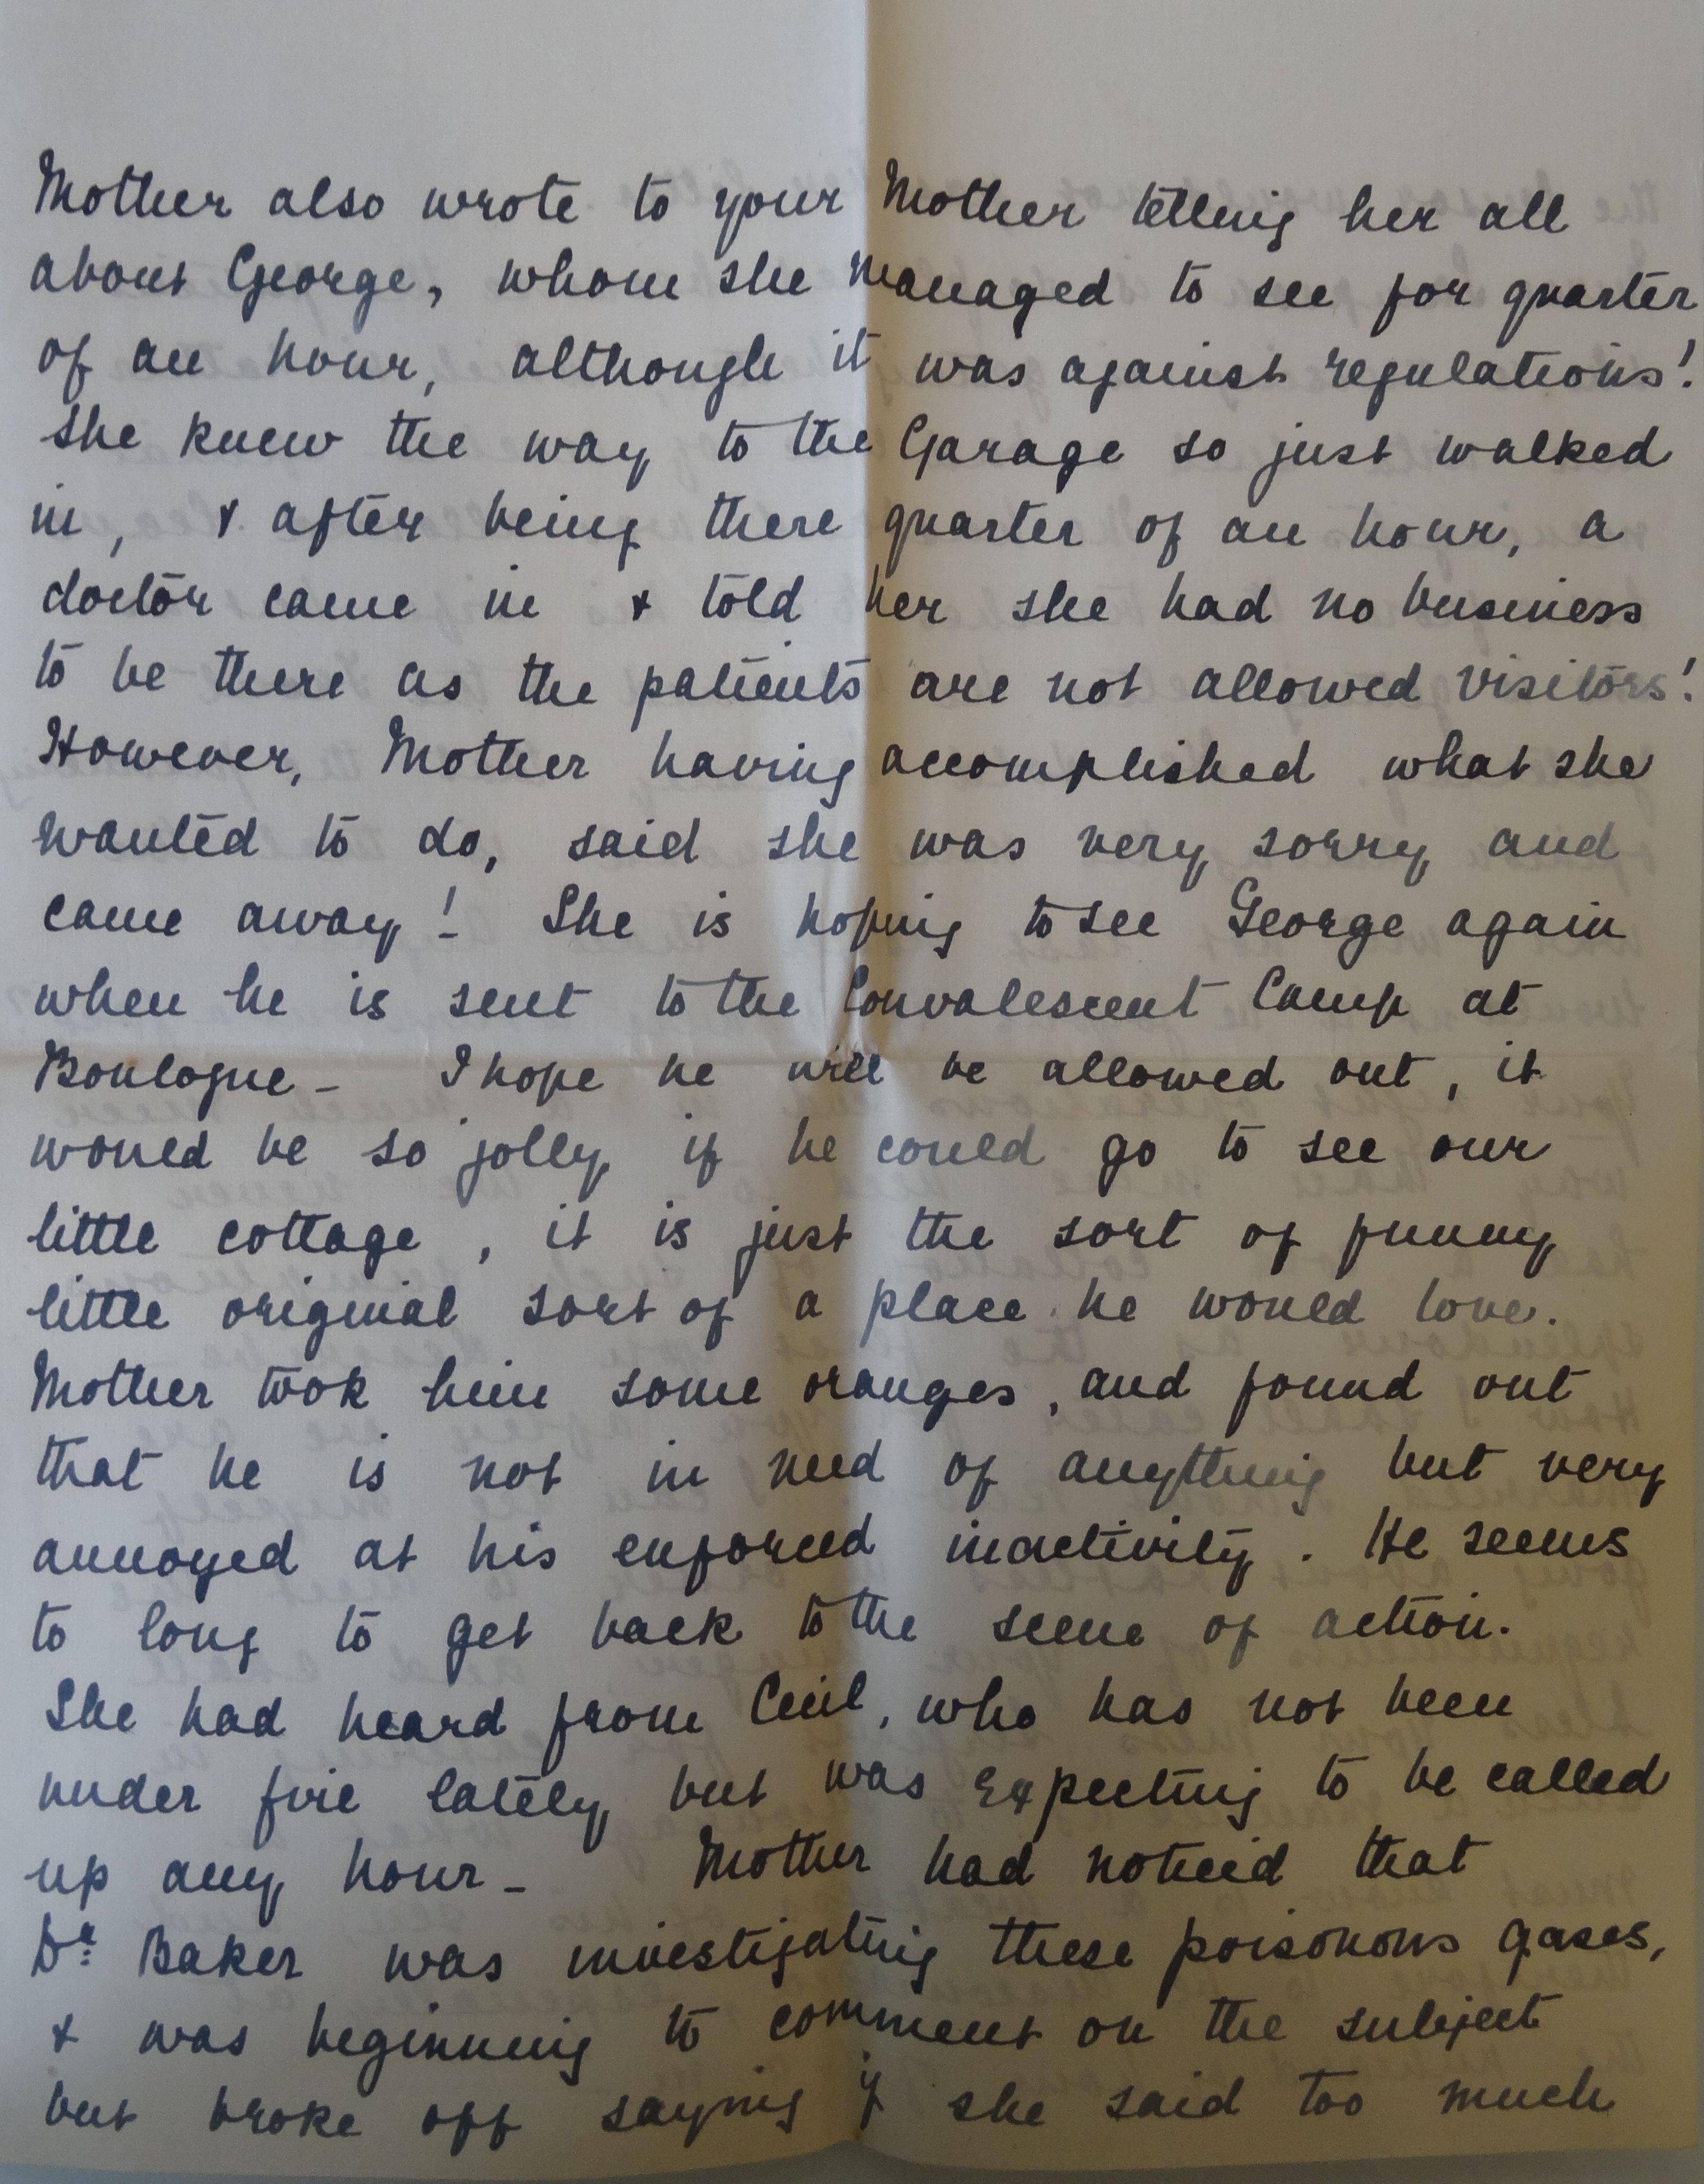 Mother also wrote to your Mother telling her all
about George, whom she managed to see for quarter
of an hour, although it was against regulations!
She knew the way to the Garage so just walked
in, & after being there quarter of an hour, a
doctor came in & told her she had no business
to be there as the patients are not allowed visitors!
However, Mother having accomplished what she
wanted to do, said she was very sorry and
came away! She is hoping to see George again
when he is sent to the Convalescent Camp at
Boulogne - I hope he will be allowed out, it
would be so jolly if he could go to see our
little cottage, it is just the sort of funny
little original sort of a place he would love.
Mother took him some oranges, and found out
that he is not in need of anything but very
annoyed at his enforced inactivity. He seems
to long to get back to the scene of action.
She had heard from Cecil, who has not been
under fire lately but was expecting to be called
up any hour - Mother had noticed that
Dr. Baker was investigating these poisonous gases,
& was beginning to comment on the subject
but broke off saying if she said too much